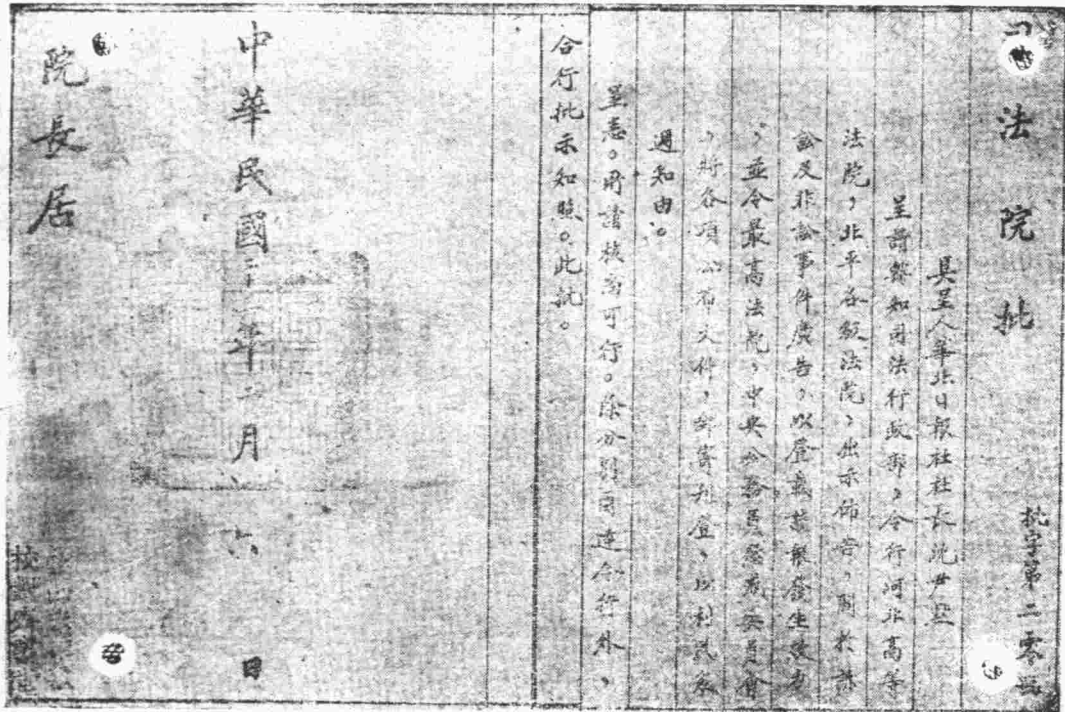 司法院批
批字第二零號
具呈人華北日報社社長沈
呈請轉知司法行政部,令行河北高等
法院,北平各級法院,出示佈告,關於訴
訟及非訟事件廣告,以登載該報發生效力
,並令最高法院,中央公務員懲戒委員會
,將各項公布文件,郵寄刊登,以利民眾
週知由。
呈悉。所請核尚可行。除分別函達令行外,
合行批示知照。此批。
中華民國二十二年二月六日
院長居